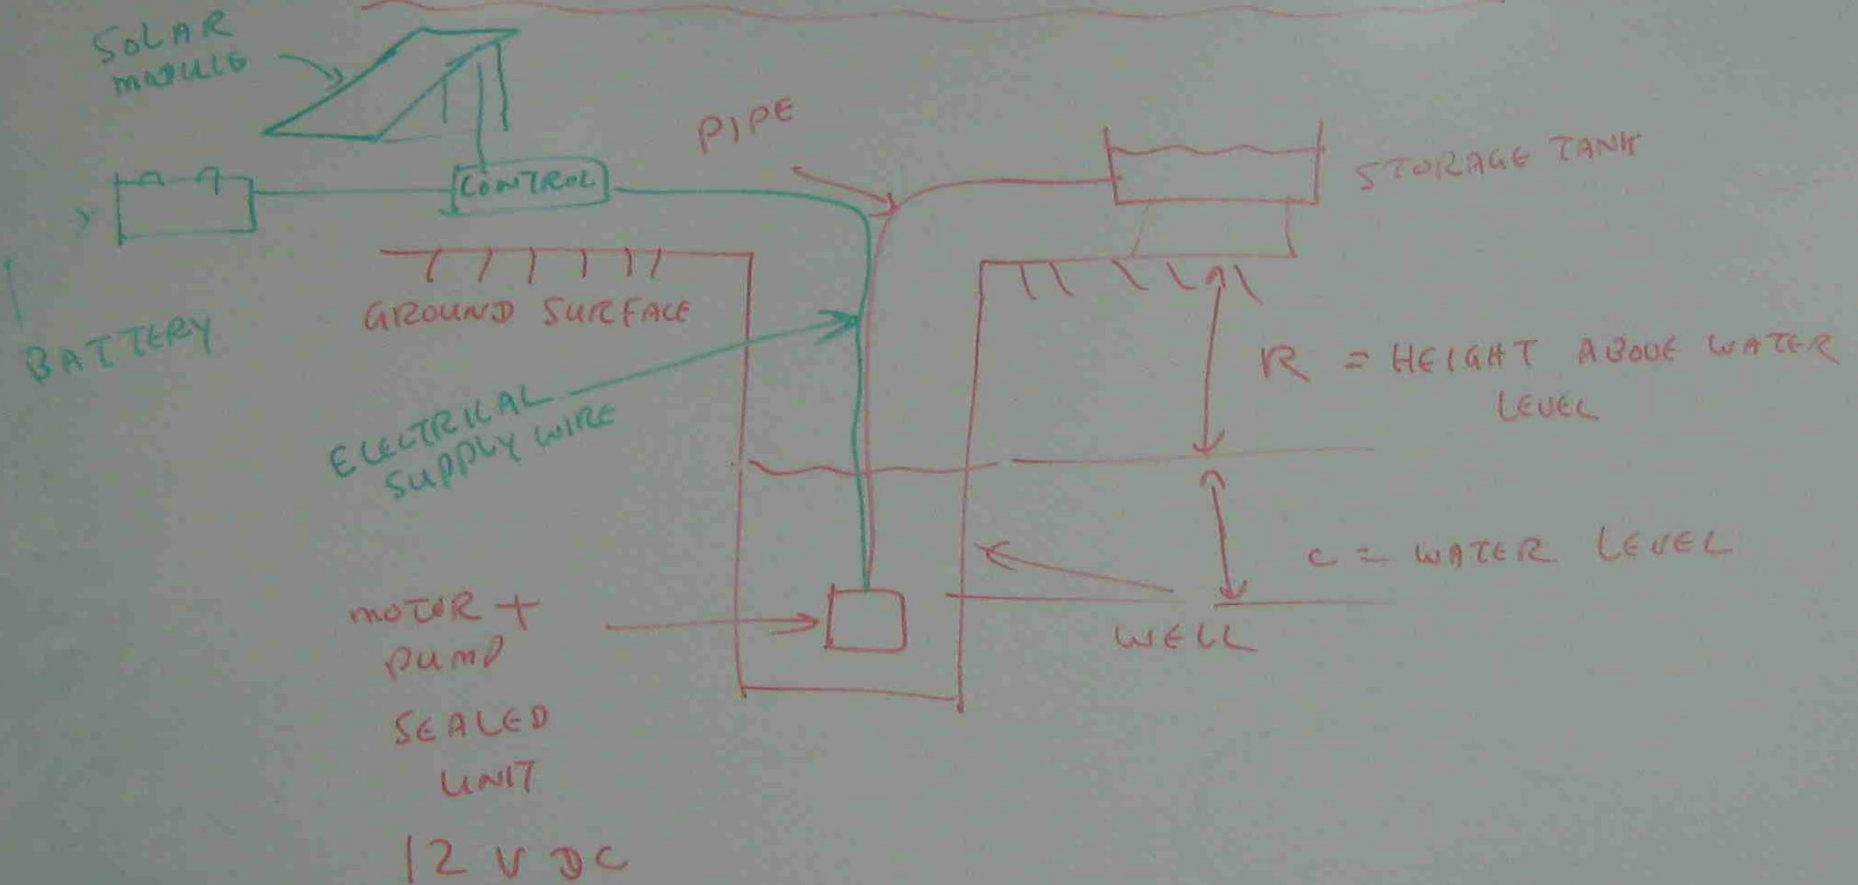 SOLAR
MODULE
PIPE
STORAGE TANK
CONTROL
GROUND SURFACE
BATTERY
ELECTRICAL
SUPPLY WIRE
R = HEIGHT ABOVE WATER
LEVEL
C = WATER LEVEL
MOTOR +
PUMP
WELL
SEALED
UNIT
12 V DC